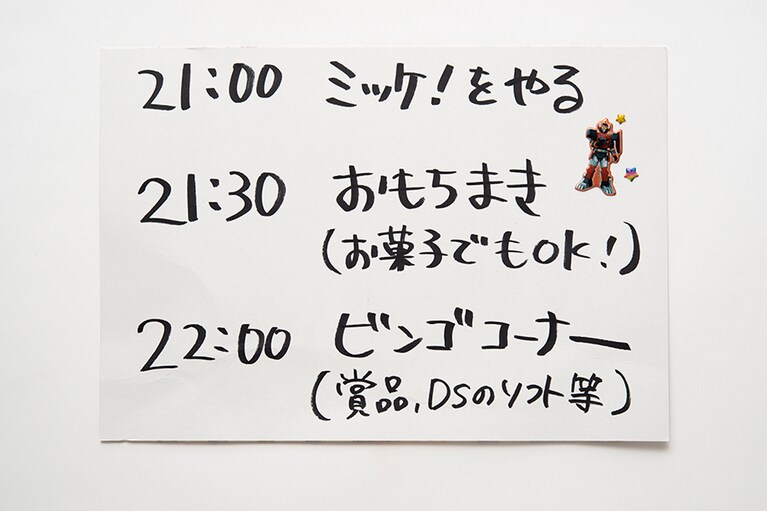 21:00 ミッケ!をやる
21:30 おもちまき
(お菓子でもOK!)
22:00 ビンゴコーナー
(賞品,DSのソフト等)